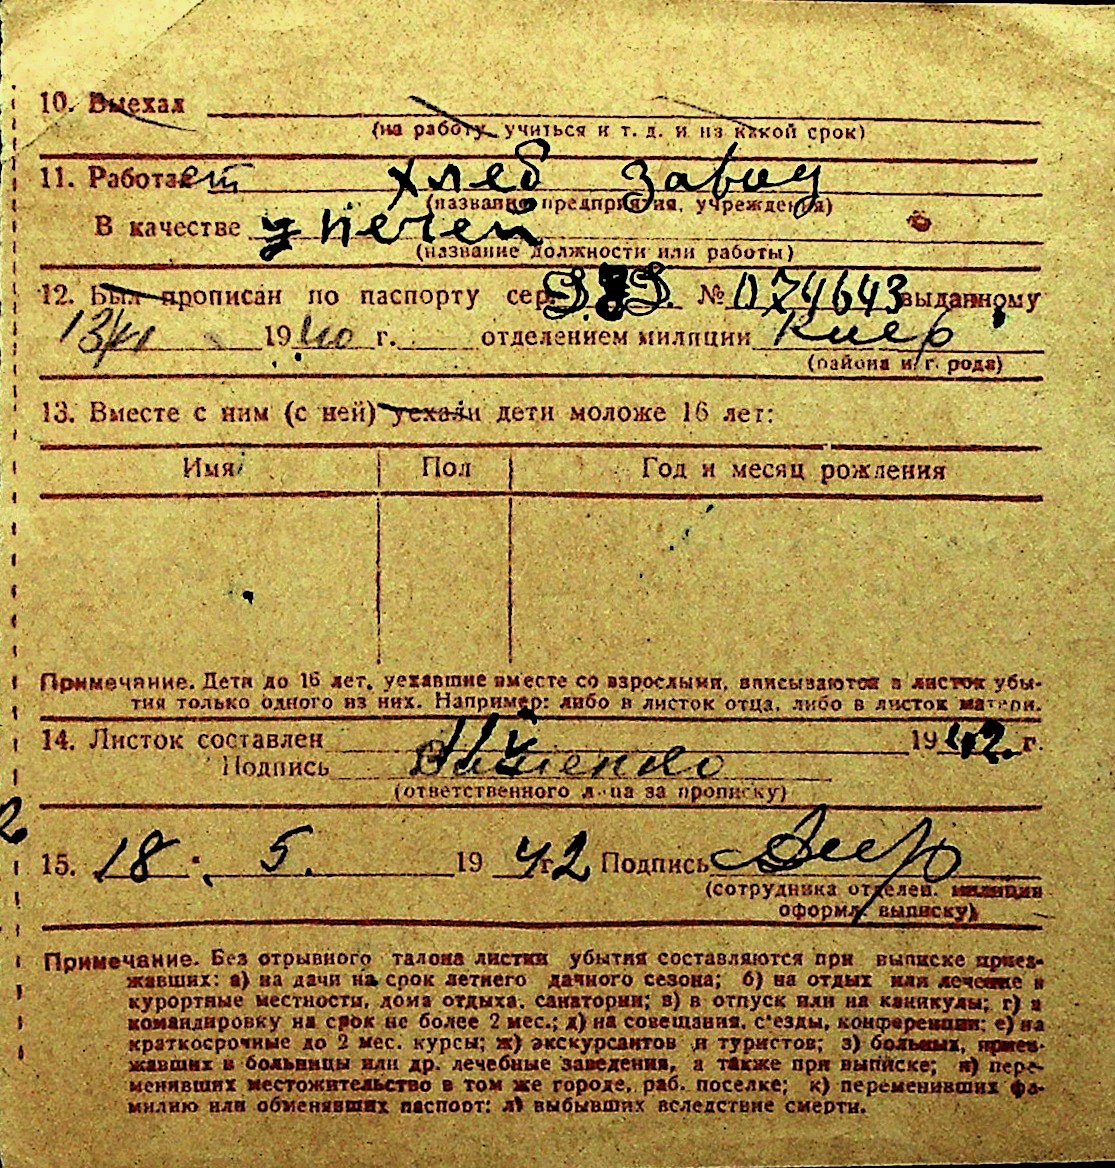 10. Выехал
(на работу, учиться и т. д. и на какой срок)
11. Работает хлеб завод
(название предприятия, учреждения)
В качестве у печей
(название должности или работы)
12. Был прописан по паспорту сер. № 074643 выданному
13/VI 1940 г. отделением милиции Киев
(района и города)
13. Вместе с ним (с ней) уехали дети моложе 16 лет:
Имя Пол Год и месяц рождения
Примечание. Дети до 16 лет, уехавшие вместе со взрослыми, вписываются в листок убы-
тия только одного из них. Например: либо в листок отца, либо в листок матери.
14. Листок составлен 1942 г.
Подпись
(ответственного лица за прописку)
15. 18. 5. 1942 г. Подпись
(сотрудника отделен. милиции
оформл. выписку)
Примечание. Без отрывного талона листки убытия составляются при выписке приез-
жавших: а) на дачи на срок летнего дачного сезона; б) на отдых или лечение в
курортные местности, дома отдыха, санатории; в) в отпуск или на каникулы; г) в
командировку на срок не более 2 мес.; д) на совещания, с'езды, конференции; е) на
краткосрочные до 2 мес. курсы; ж) экскурсантов и туристов; з) больных, приез-
жавших в больницы или др. лечебные заведения, а также при выписке; и) пере-
менивших местожительство в том же городе, раб. поселке; к) переменивших фа-
милию или обменявших паспорт; л) выбывших вследствие смерти.